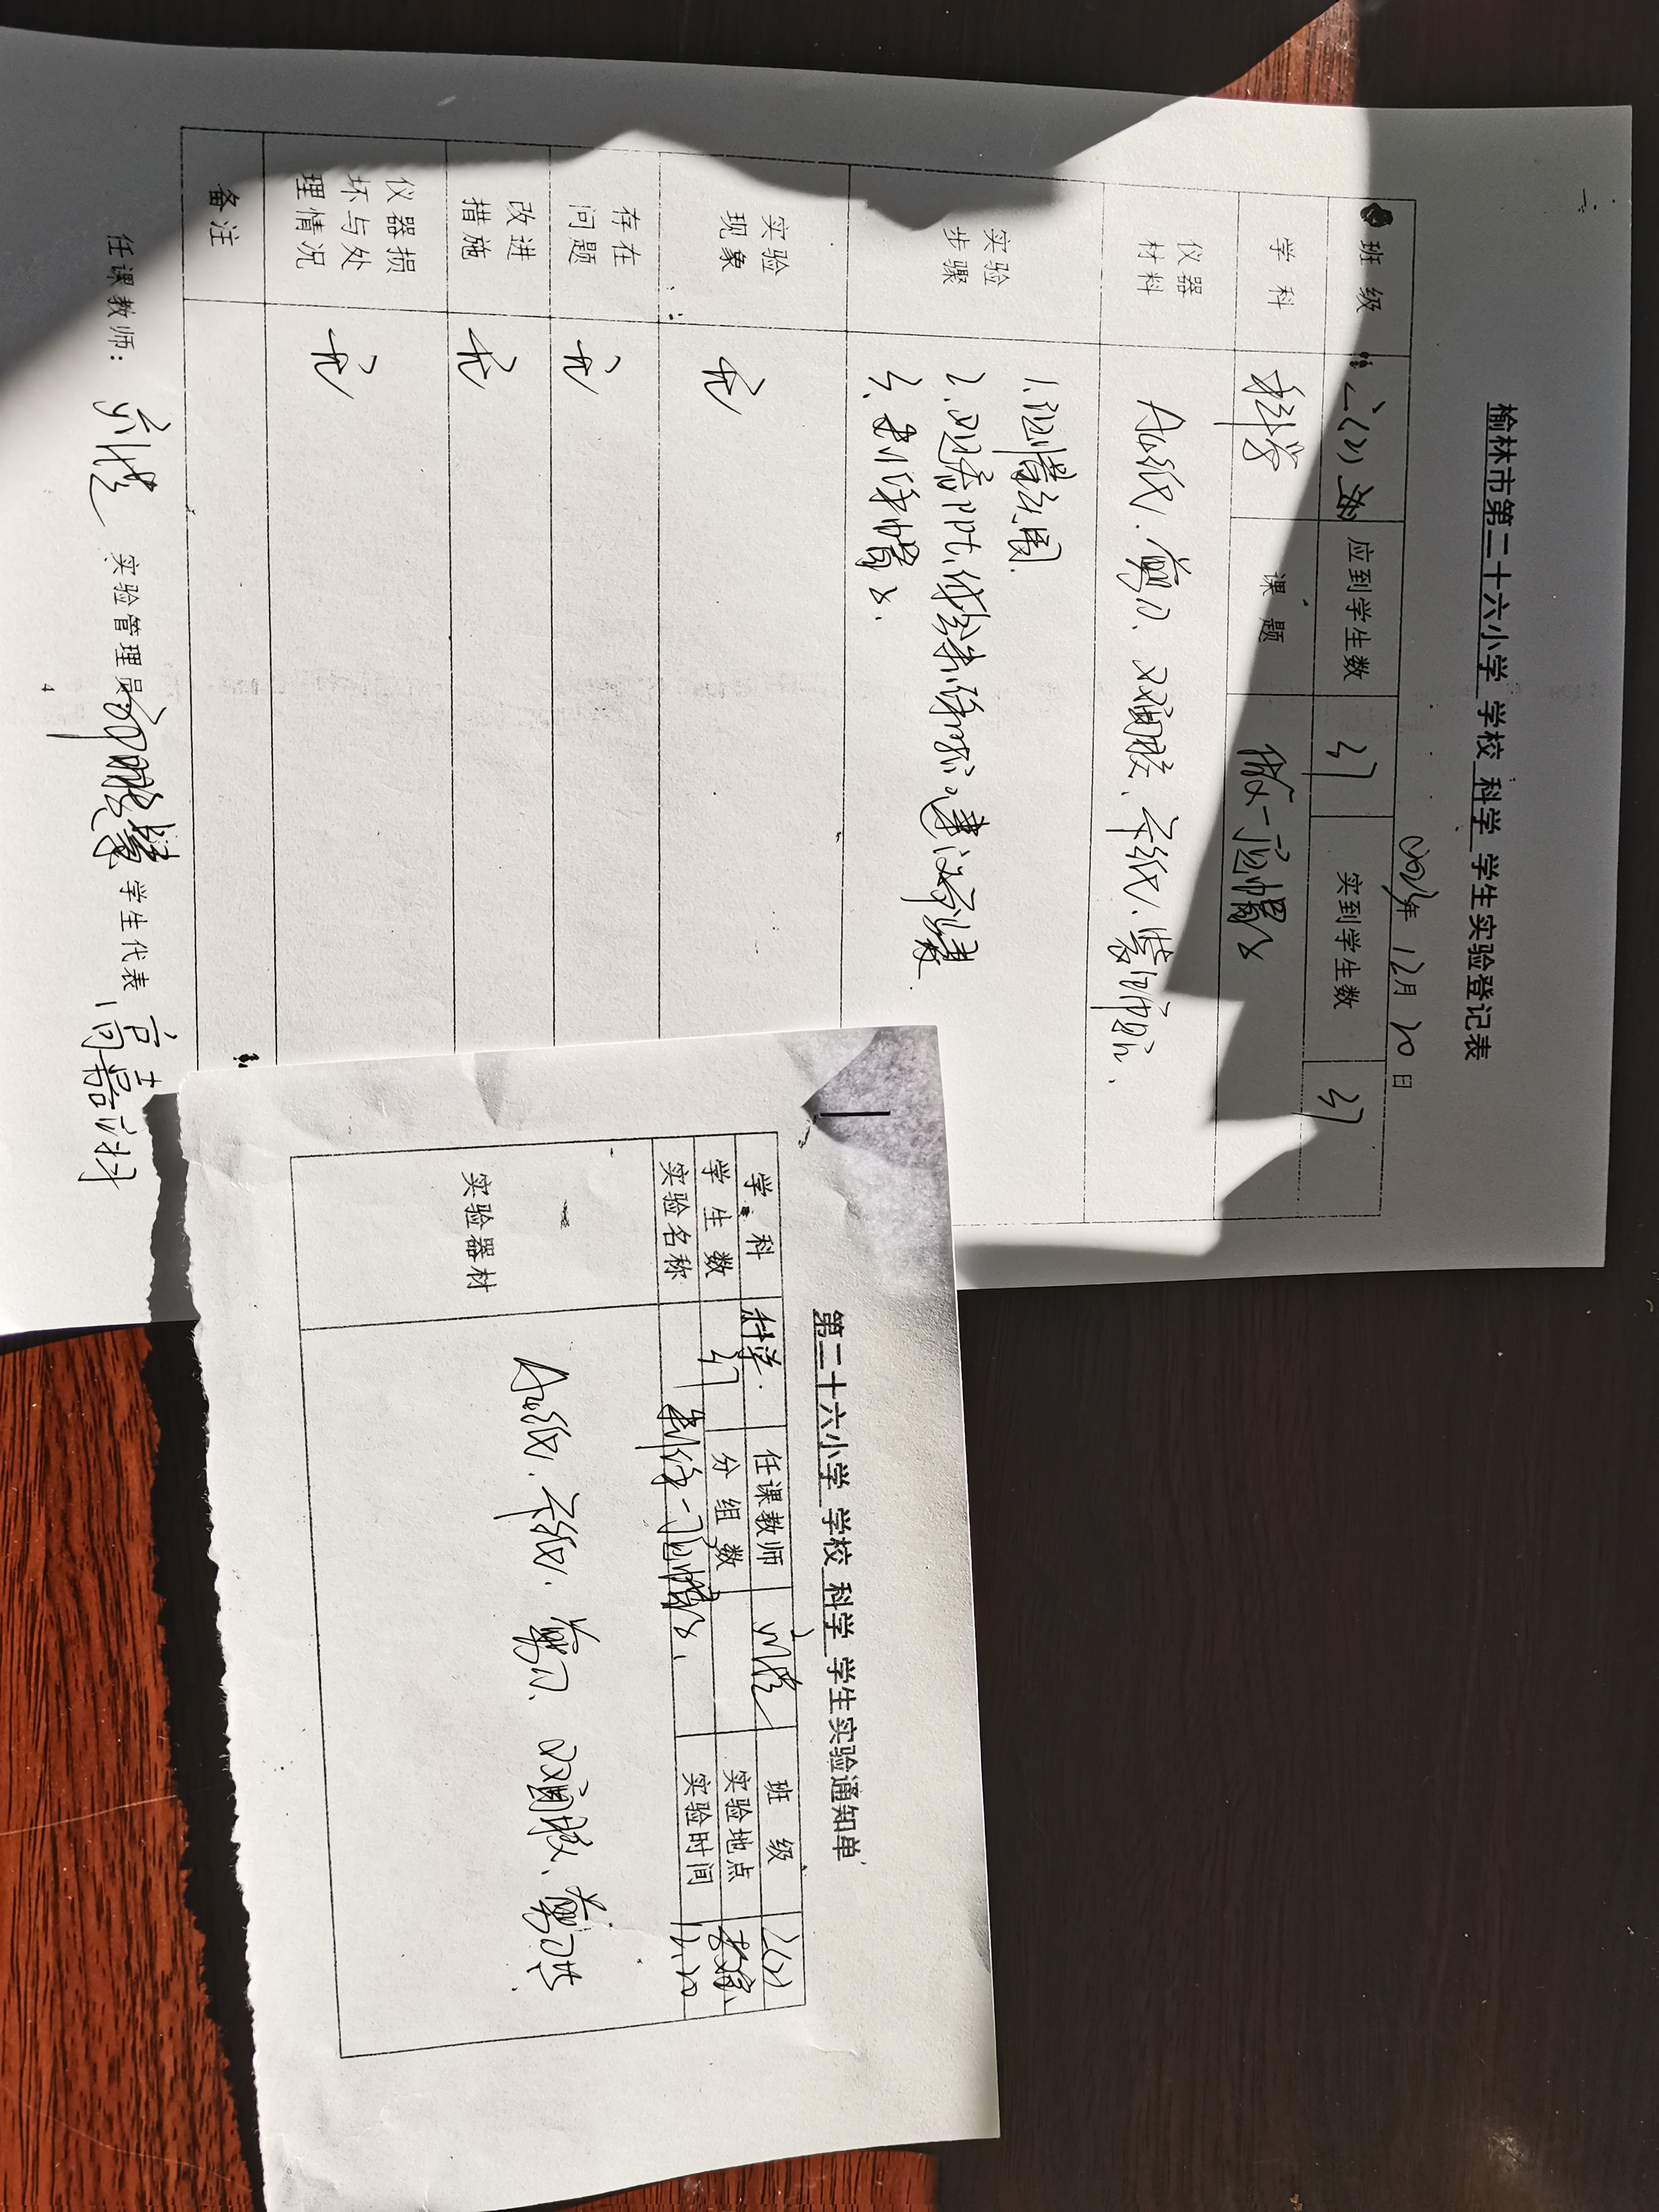 榆林市第二十六小学 学校 科学 学生实验登记表
2023年 12月 20日
班级 二(2) 应到学生数 37 实到学生数 37
学科 科学 课题 做一顶帽子
仪器材料 A4纸、剪刀、双面胶、卡纸、装饰品、
实验步骤 1.
2. PPT
3、制作帽子.
实验现象 无
存在问题 无
改进措施 无
仪器损坏与处理情况 无
备注
任课教师: 实验管理员 学生代表
4
第二十六小学 学校 科学 学生实验通知单
学科 科学. 任课教师 班级 2(2)
学生数 37 分组数 实验地点 教室
实验名称 制作一顶帽子、 实验时间 12.20
实验器材 A4纸、卡纸、剪刀、双面胶、剪刀等